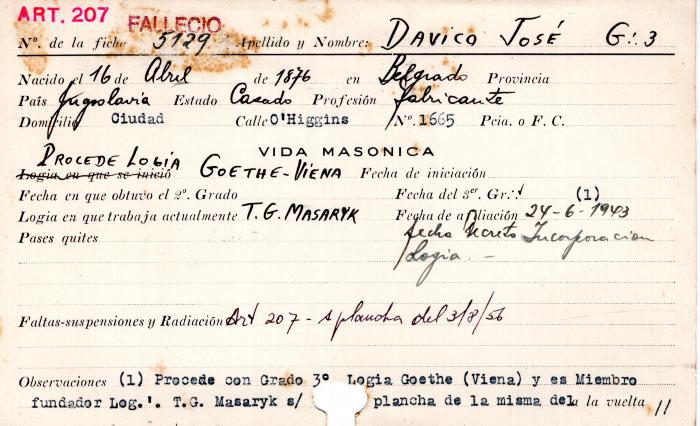 ART. 207
FALLECIO
Nº. de la ficha 5129 Apellido y Nombre: DAVICO JOSÉ G∴ 3
Nacido el 16 de Abril de 1876 en Belgrado Provincia
País Jugoslavia Estado Casado Profesión fabricante
Domicilio Ciudad Calle O'Higgins Nº. 1665 Pcia. o F. C.
VIDA MASONICA
PROCEDE LOGIA
Logia en que se inició GOETHE-VIENA Fecha de iniciación
Fecha en que obtuvo el 2º. Grado Fecha del 3er. Gr∴ (1)
Logia en que trabaja actualmente T.G. MASARYK Fecha de afiliación 24-6-1943
Pases quites fecha Decreto Incorporacion
Logia. —
Faltas-suspensiones y Radiación Art 207 - s/plancha del 3/8/56
Observaciones (1) Procede con Grado 3º Logia Goethe (Viena) y es Miembro
fundador Log.'. T.G. Masaryk s/ plancha de la misma del a la vuelta //